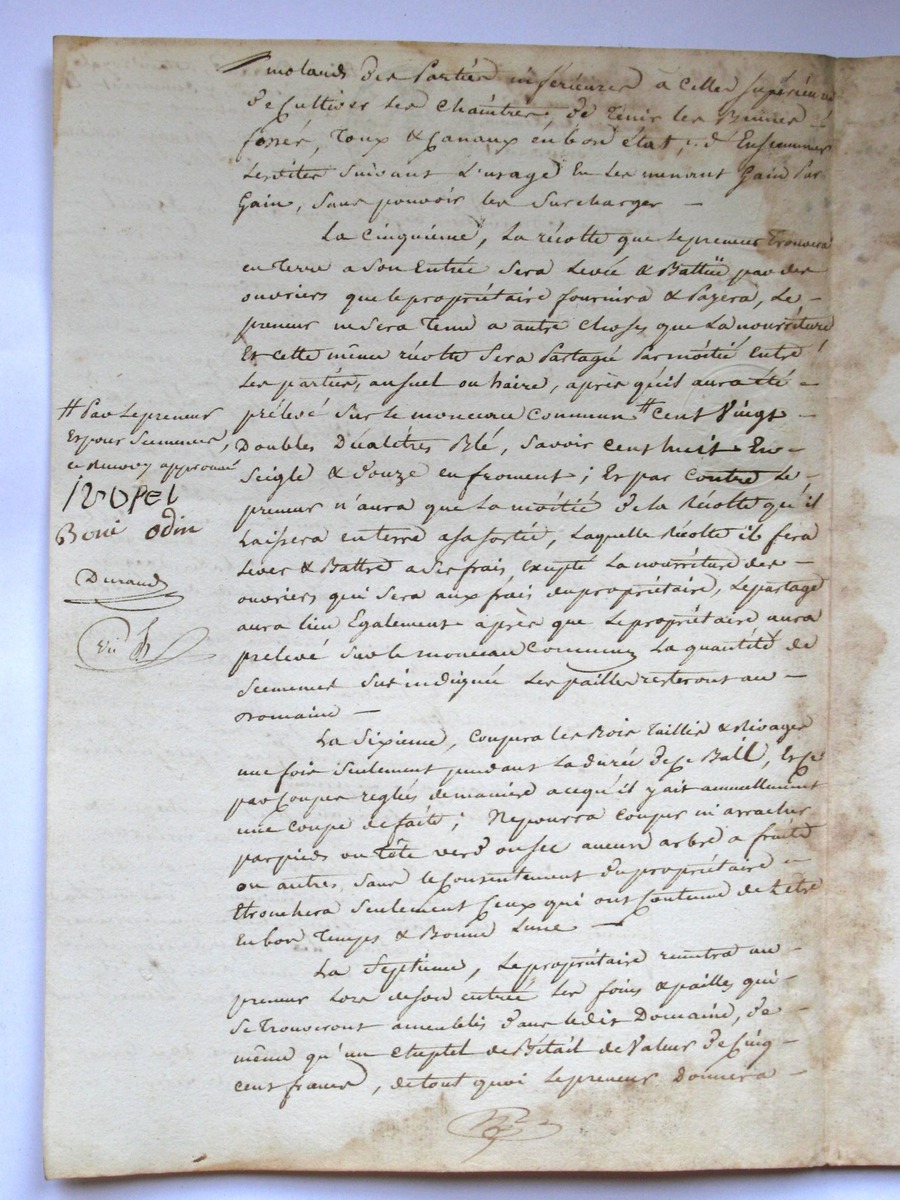 molands des Parties inférieures à celles supérieures
de Cultiver les Chaintres, de Tenir les
fossés, & Canaux en bon état, d'Ensemmer
Lesdites Suivant L'usage En les menant Gain Par
Gain, sans pouvoir les Surcharger —
La Cinquième, La récolte que Lepreneur Trouvera
en Terre a Son Entrée Sera Levée & Battüe par des
ouvriers que le propriétaire fournira & Payera, Le –
preneur ne Sera Tenu a autre Choses que La nourriture
Et cette même récolte Sera Partagée Par moitié Entre
Les parties, au suel ou haire, après qu'il aura été –
prélevé Sur le monceau Commun # Cent Vingt –
Doubles Décalitres Blé, Savoir Cent huit En –
Seigle & douze en froment ; Et par Contre Le –
preneur n'aura que La moitié de la Récolte qu'il
Laissera en terre a sa sortie, Laquelle Récolte il fera
Lever & Battre a ses frais excepté La nourriture des –
ouvriers qui Sera aux frais du propriétaire, Le partage
aura lieu Egalement après que Le propriétaire aura
prelevé Sur le monceau Commun La quantité de
Semences Sus indiquée Les pailles resteront au –
Domaine —
La Sixième, Coupera les Bois Taillis & Rivages
une fois Seulement pendant La durée de ce Bail, Et ce
par Coupes reglées de manière a ce qu'il y ait annuellement
une Coupe de faite ; Ne pourra Couper ni arracher
par pieds ou Tête verd ou sec aucun arbre a fruits
ou autres, Sans le Consentement du propriétaire –
Etronchera Seulement Ceux qui ont Coutume de L'etre
En bon Temps & Bonne Lune —
La Septième, Le propriétaire remettra au –
preneur Lors de son entrée Les foins & pailles qui –
Se Trouveront ameublés dans ledit Domaine, de –
même qu'un Cheptel de Bétail de Valeur de Cinq –
cent francs, de tout quoi Le preneur Donnera –
# Par Le preneur
Et pour Semences,
ce Renvoy approuvé
Boné odin
Durand